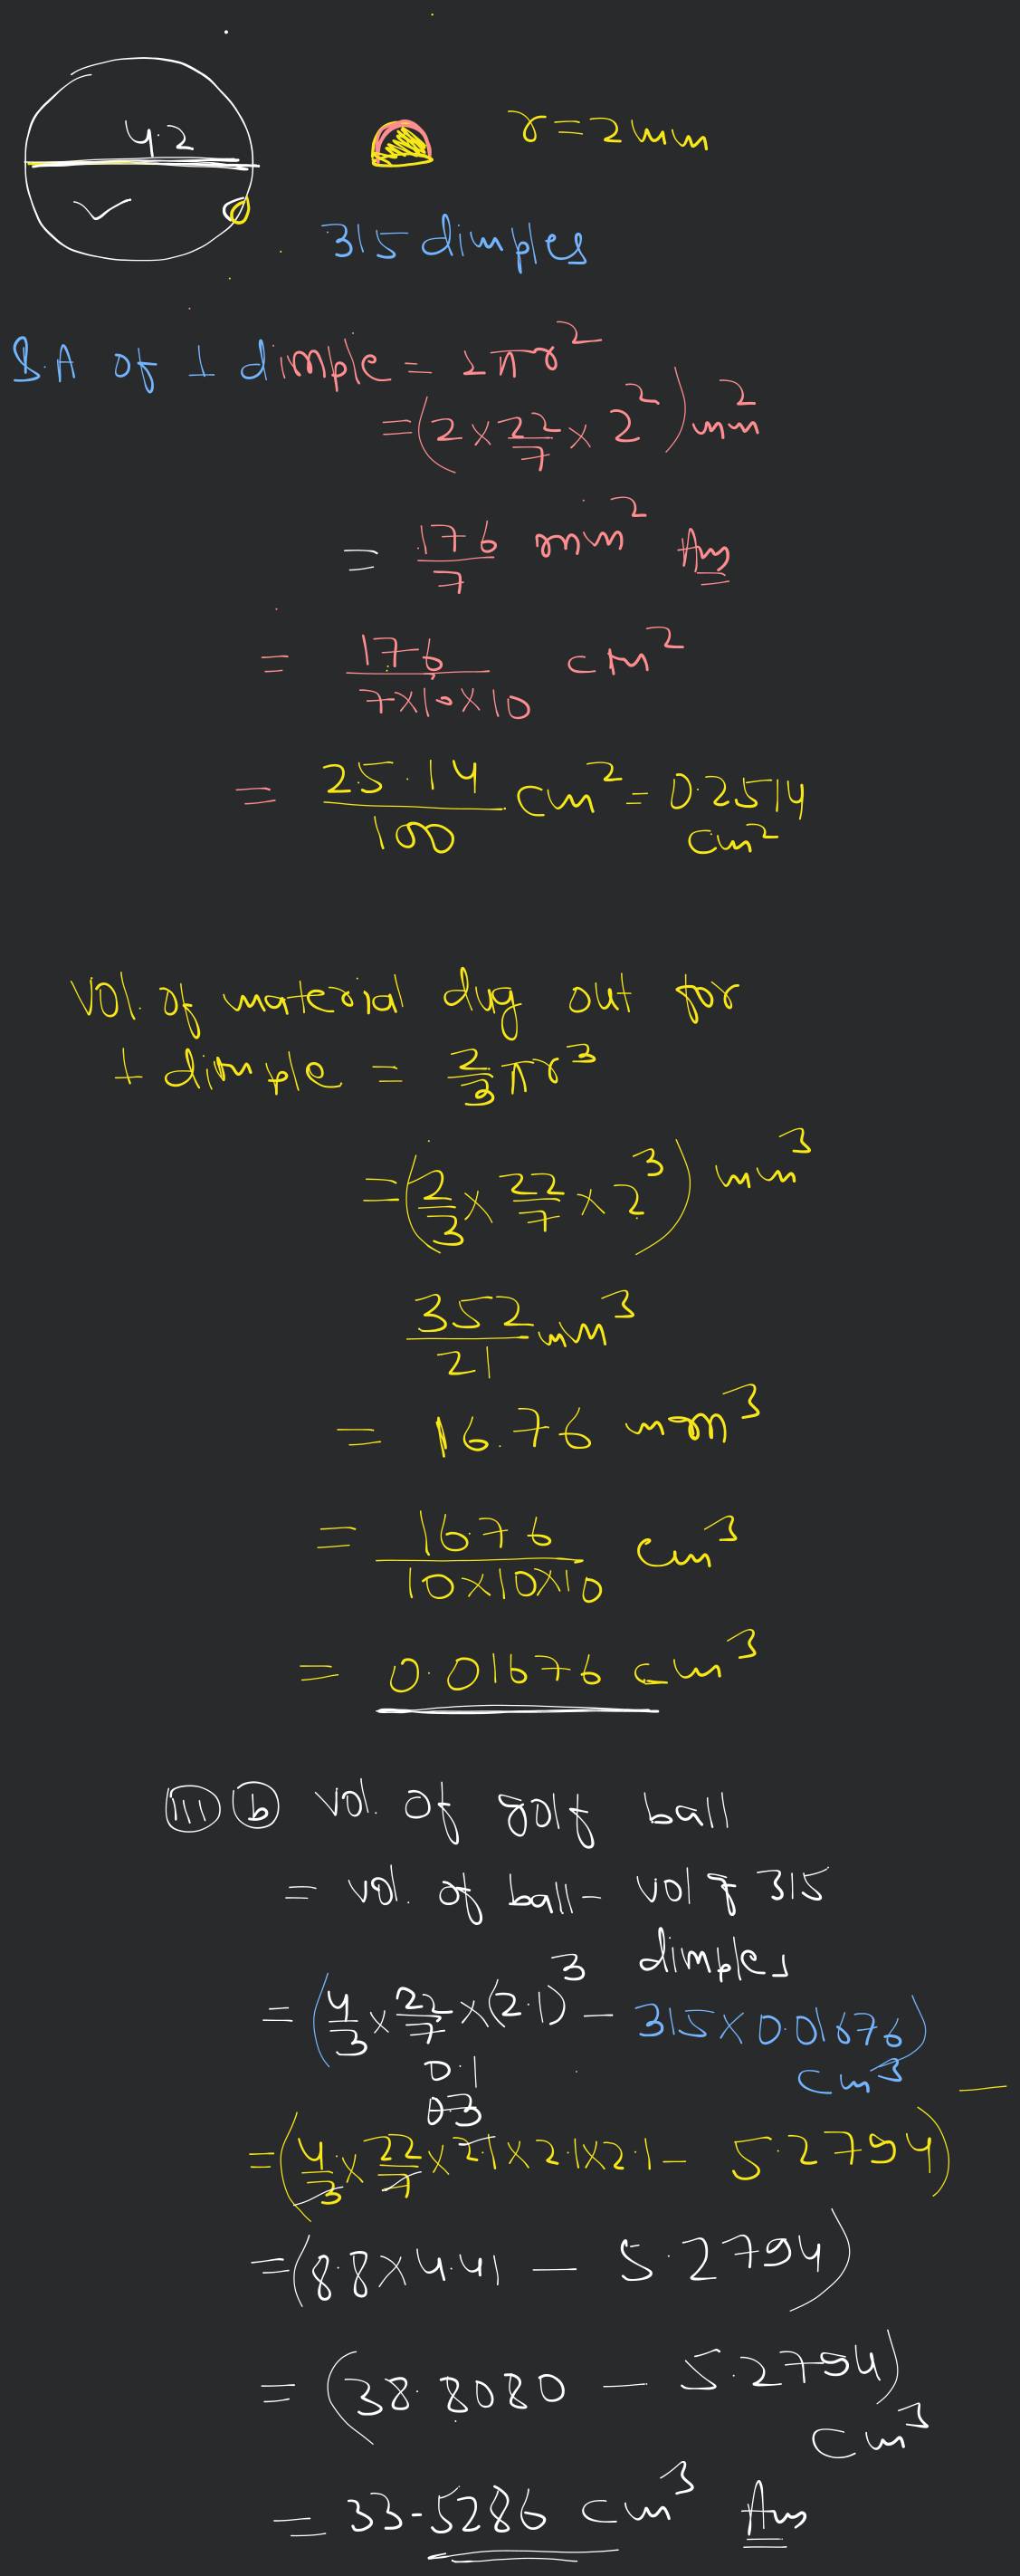 4.2
r = 2mm
315 dimples
S.A of 1 dimple = 2πr²
= (2 × 22/7 × 2²) mm²
= 176/7 mm² Ans
= 176/(7×10×10) cm²
= 25.14/100 cm² = 0.2514 cm²
Vol. of material dug out for
1 dimple = 2/3 πr³
= (2/3 × 22/7 × 2³) mm³
352/21 mm³
= 16.76 mm³
= 16.76/(10×10×10) cm³
= 0.01676 cm³
(III) (b) Vol. of golf ball
= Vol. of ball - Vol of 315
dimples
= (4/3 × 22/7 × (2.1)³ - 315 × 0.01676)
cm³
0.1
0.3
= (4/3 × 22/7 × 2.1 × 2.1 × 2.1 - 5.2794)
= (8.8 × 4.41 - 5.2794)
= (38.8080 - 5.2794)
cm³
= 33.5286 cm³ Ans